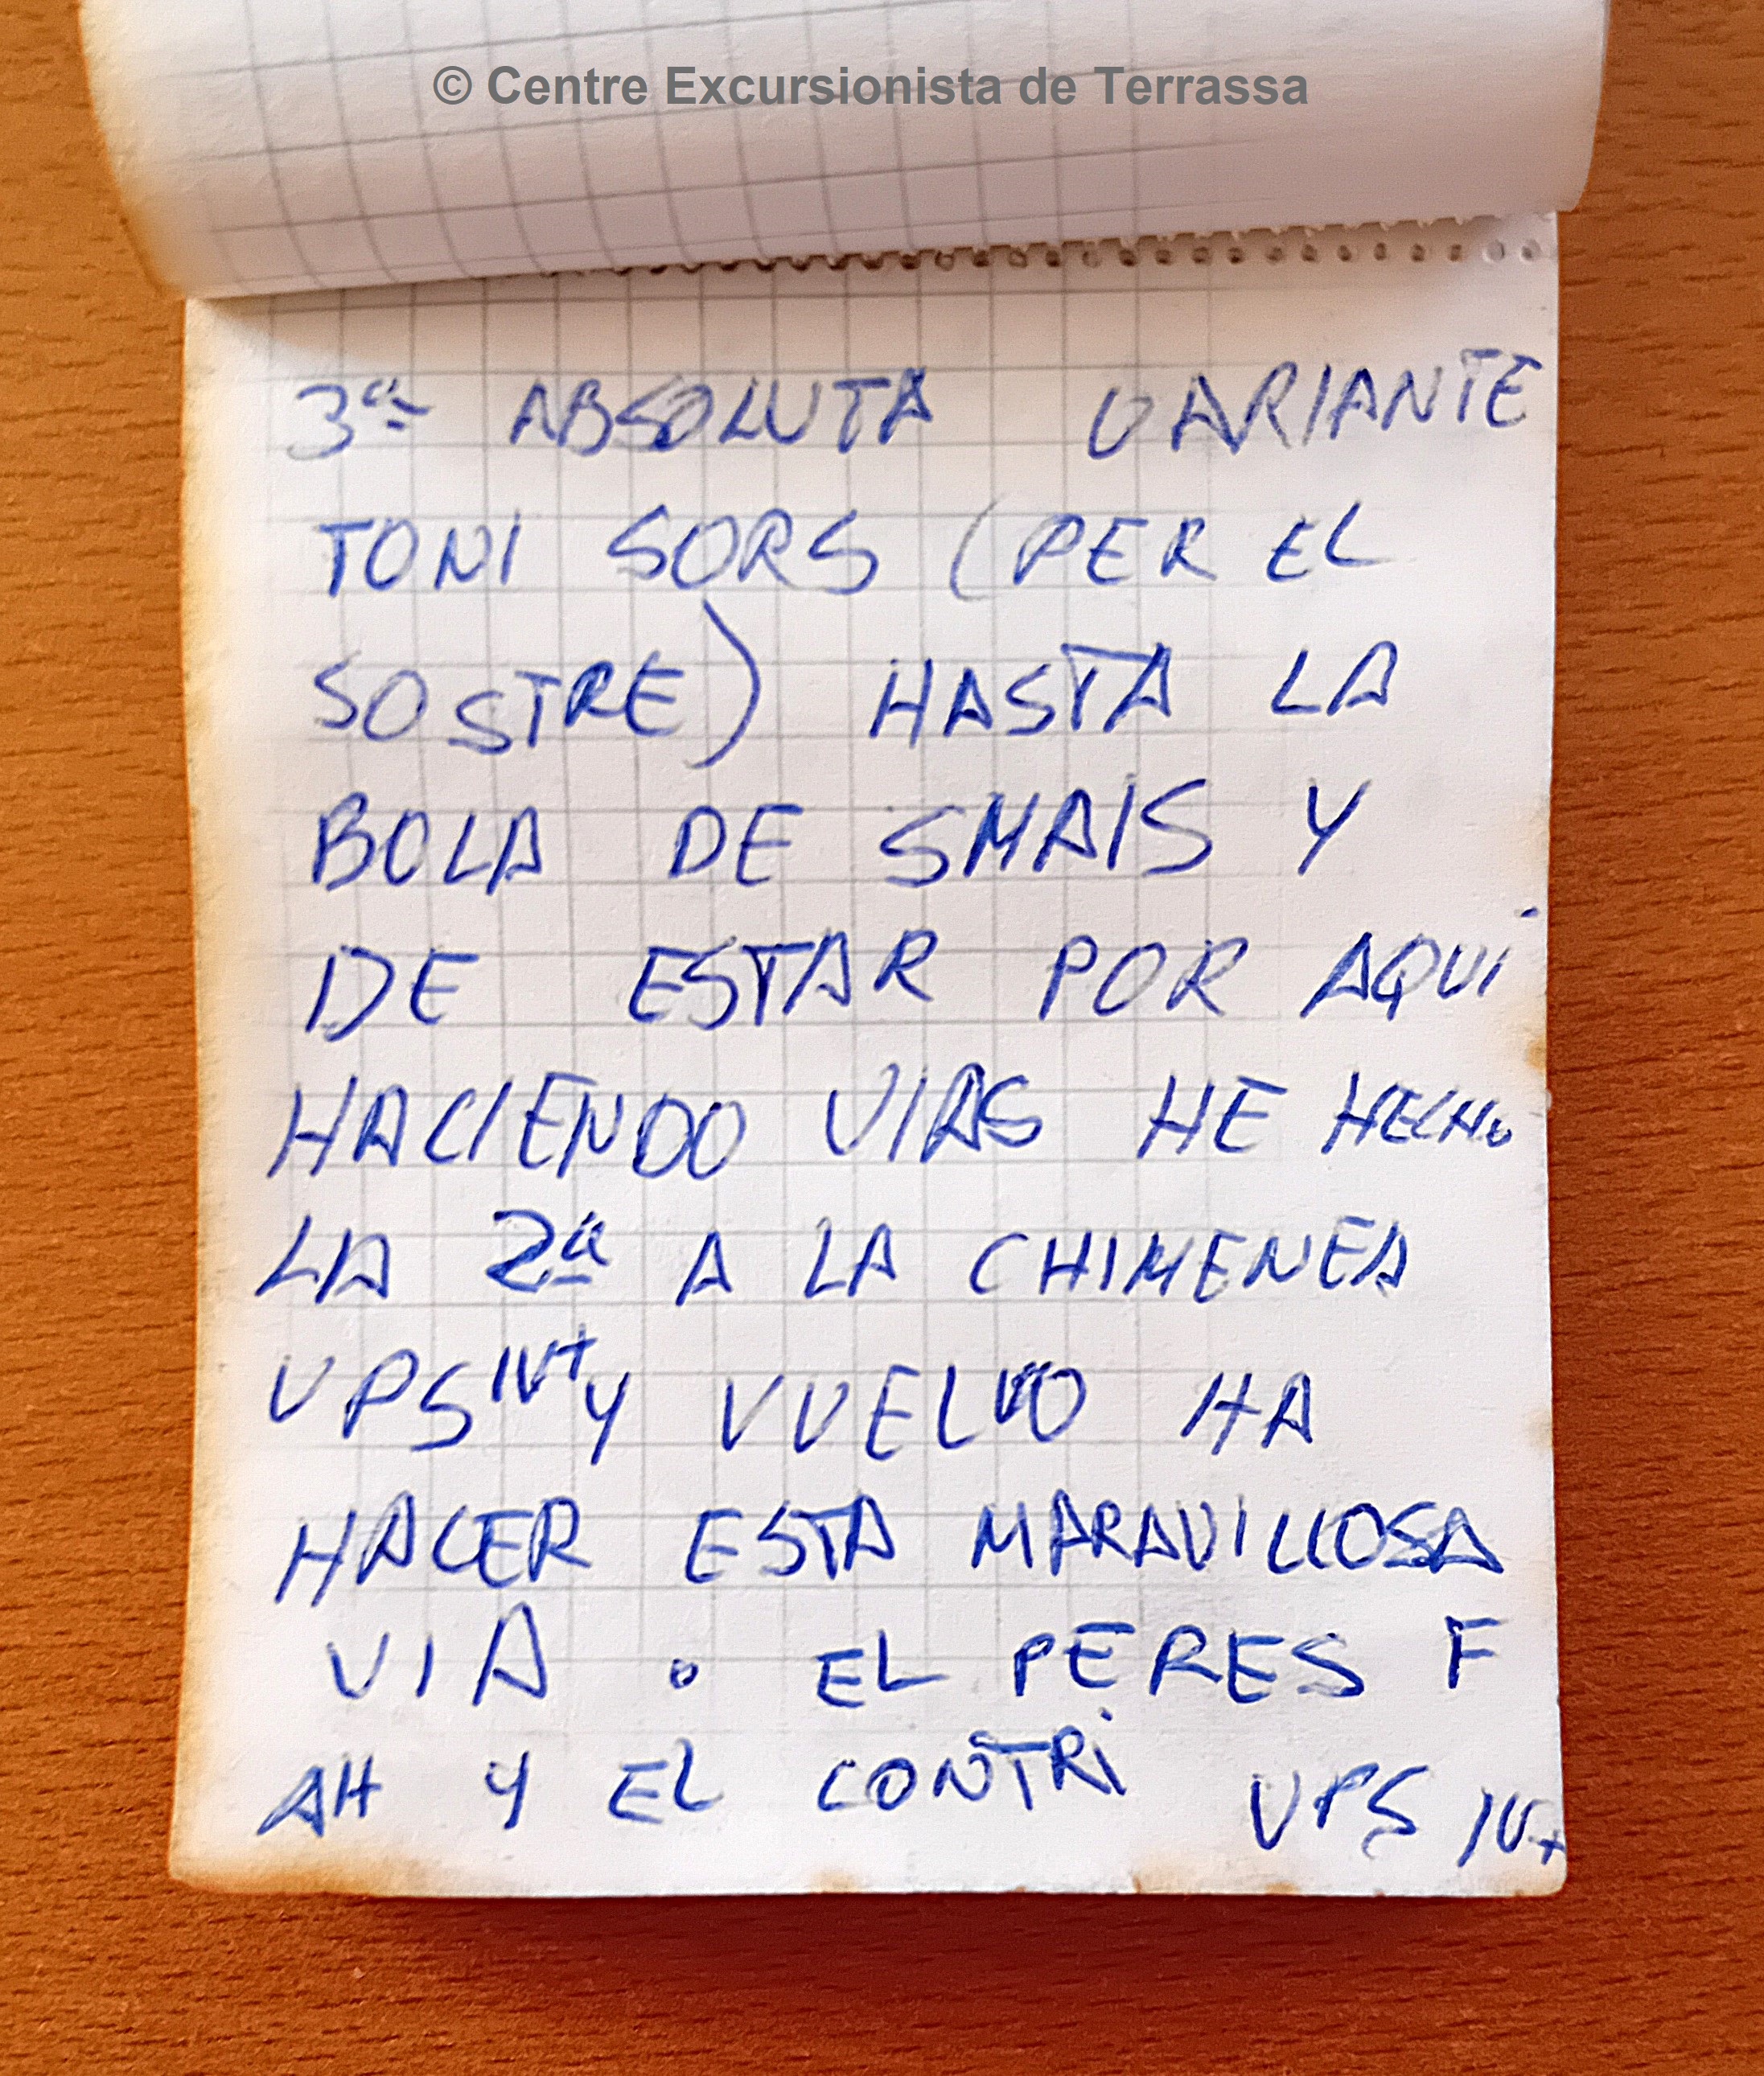 © Centre Excursionista de Terrassa
3ª ABSOLUTA VARIANTE
TONI SORS (PER EL
SOSTRE) HASTA LA
BOLA DE SMAIS Y
DE ESTAR POR AQUÍ
HACIENDO VIAS HE HECHO
LA 2ª A LA CHIMENEA
VPS IV+ Y VUELVO HA
HACER ESTA MARAVILLOSA
VIA . EL PERES F
AH Y EL CONTRI VPS IV+